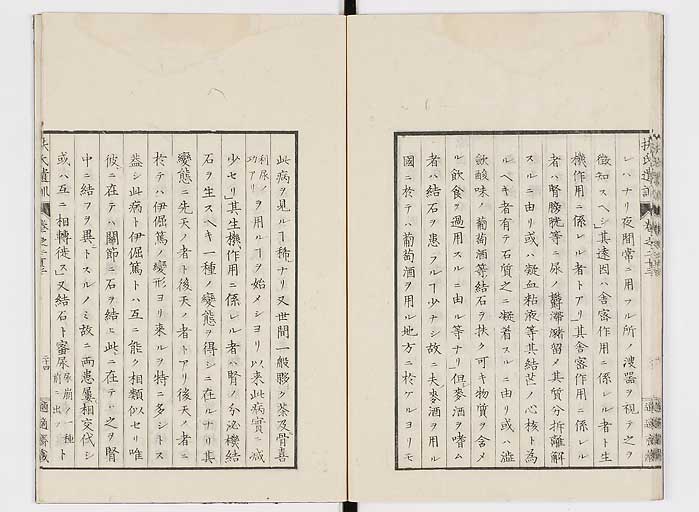 扶氏遺訓 卷之二十三
適適齋藏
レハナリ夜間常ニ用フル所ノ溲器ヲ視テ之ヲ
徴知スヘシ」其遠因ハ舎密作用ニ係レル者ト生
機作用ニ係レル者トアリ」其舎密作用ニ係レル
者ハ腎膀胱等ニ尿ノ鬱滞瀦留ノ其質分拆離解
スルニ由リ或ハ凝血粘液等其結石ノ心核ト為
ルヘキ者有テ石質之ニ凝着スルニ由リ或ハ澁
飲酸味ノ葡萄酒等結石ヲ扶ク可キ物質ヲ含メ
ル飲食ヲ過用スルニ由ル等ナリ但麥酒ヲ嗜ム
者ハ結石ヲ患フルヿ少ナシ故ニ夫麥酒ヲ用ル
國ニ於テハ葡萄酒ヲ用ル地方ニ於ケルヨリモ
此病ヲ見ルヿ稀ナリ又世間一般夥ク茶及骨喜
利尿ノ功アリヲ用ルヿヲ始メシヨリ以来此病實ニ减
少セリ」其生機作用ニ係レル者ハ腎ノ分泌機結
石ヲ生スヘキ一種ノ變態ヲ得シニ在ルナリ其
變態ニ先天ノ者ト後天ノ者トアリ後天ノ者ニ
於テハ伊倔篤ノ變形ヨリ来ルヲ特ニ多シトス
蓋シ此病ト伊倔篤トハ互ニ能ク相類似セリ唯
彼ニ在テハ關節ニ石ヲ結ヒ此ニ在テハ之ヲ腎
中ニ結フヲ異トスルノミ故ニ両患屢相交代シ
或ハ互ニ相轉徙ス」又結石ト審尿尿崩ノ一種前ニ出ツト
扶氏遺訓 卷之二十三
二十四
適適齋藏